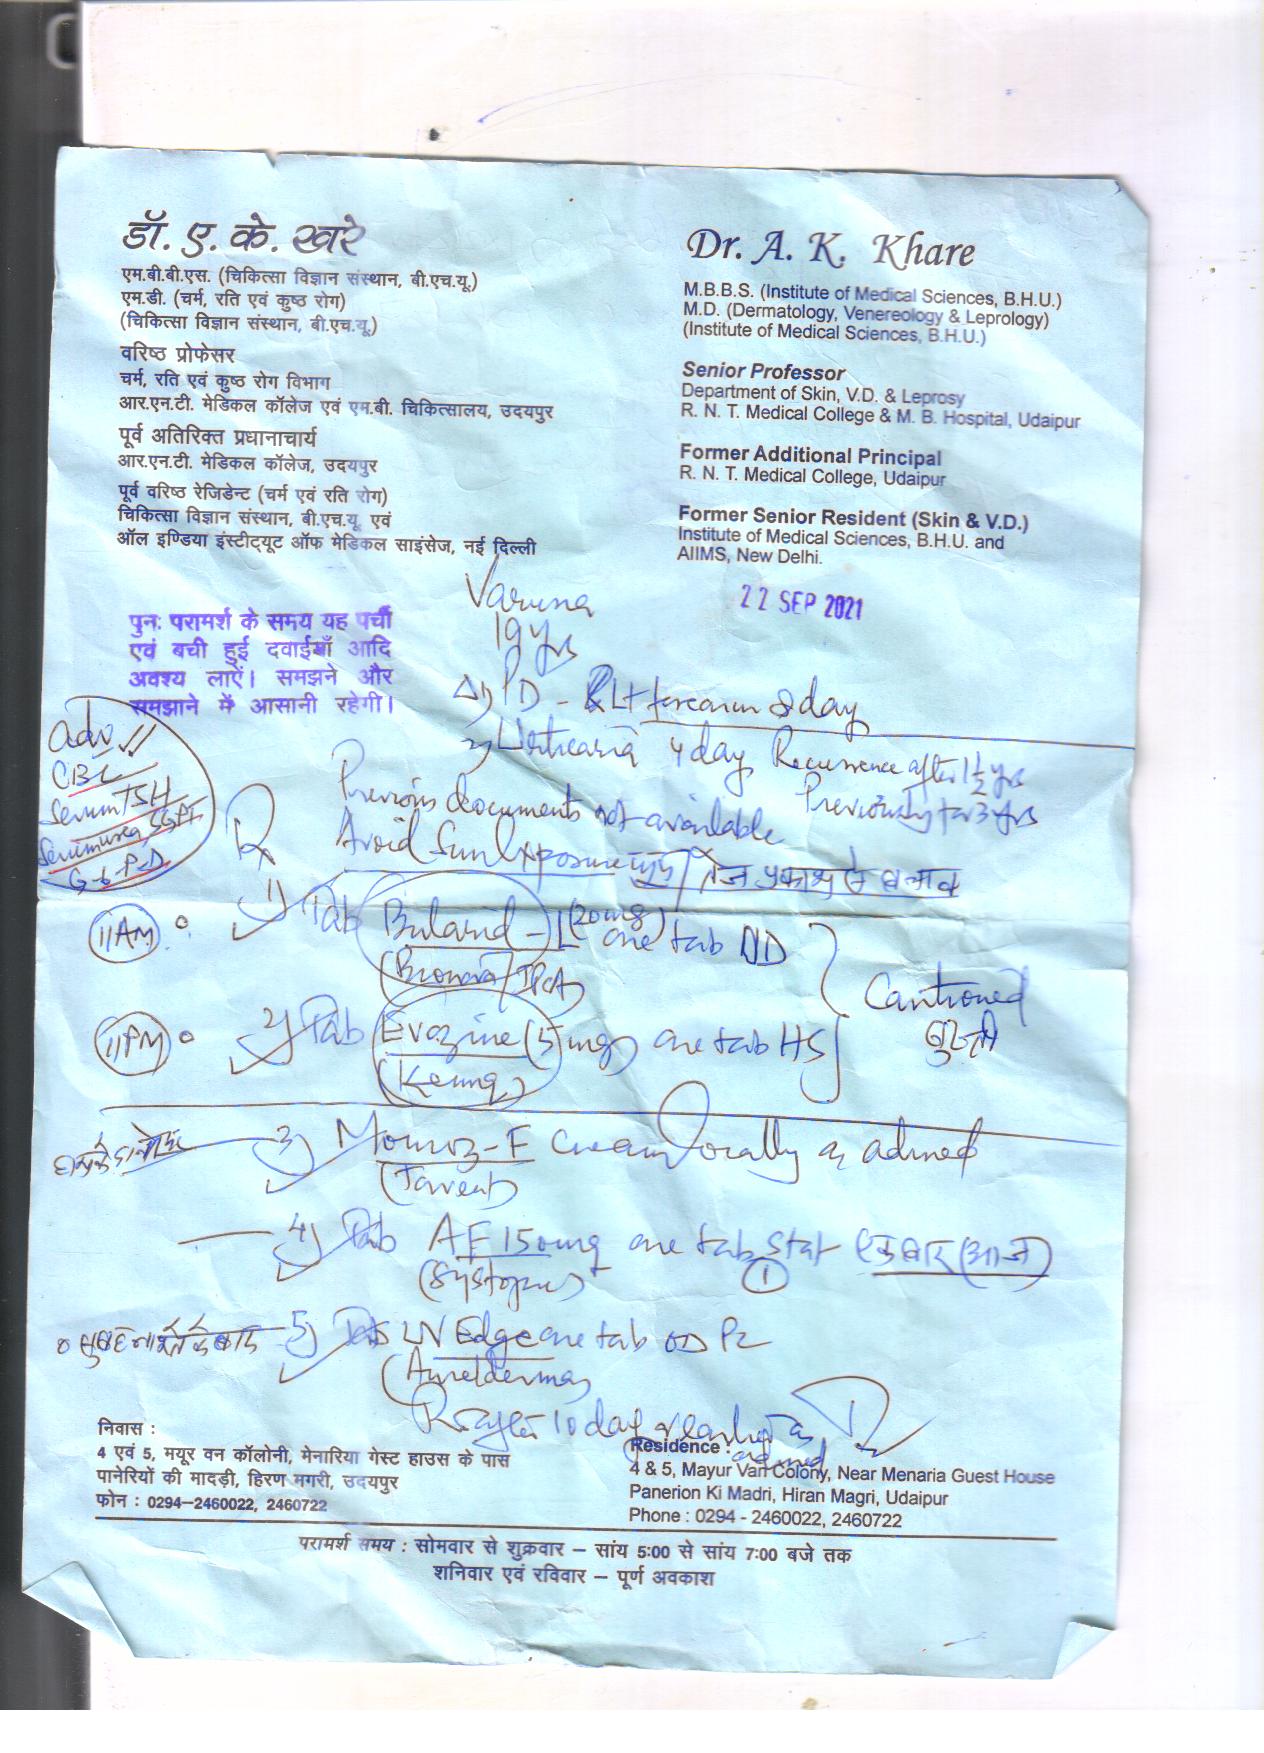 डॉ. ए. के. खरे
एम.बी.बी.एस. (चिकित्सा विज्ञान संस्थान, बी.एच.यू.)
एम.डी. (चर्म, रति एवं कुष्ठ रोग)
(चिकित्सा विज्ञान संस्थान, बी.एच.यू.)
वरिष्ठ प्रोफेसर
चर्म, रति एवं कुष्ठ रोग विभाग
आर.एन.टी. मेडिकल कॉलेज एवं एम.बी. चिकित्सालय, उदयपुर
पूर्व अतिरिक्त प्रधानाचार्य
आर.एन.टी. मेडिकल कॉलेज, उदयपुर
पूर्व वरिष्ठ रेजिडेन्ट (चर्म एवं रति रोग)
चिकित्सा विज्ञान संस्थान, बी.एच.यू. एवं
ऑल इण्डिया इंस्टीट्यूट ऑफ मेडिकल साइंसेज, नई दिल्ली
Dr. A. K. Khare
M.B.B.S. (Institute of Medical Sciences, B.H.U.)
M.D. (Dermatology, Venereology & Leprology)
(Institute of Medical Sciences, B.H.U.)
Senior Professor
Department of Skin, V.D. & Leprosy
R. N. T. Medical College & M. B. Hospital, Udaipur
Former Additional Principal
R. N. T. Medical College, Udaipur
Former Senior Resident (Skin & V.D.)
Institute of Medical Sciences, B.H.U. and
AIIMS, New Delhi.
22 SEP 2021
पुनः परामर्श के समय यह पर्ची
एवं बची हुई दवाईयाँ आदि
अवश्य लाऐं। समझने और
समझाने में आसानी रहेगी।
19 yrs
PD - Lt forearm 8 day
2) Urticaria 4 day Recurrence after 1½ yrs
Previous documents not available Previously for 3 yrs
Avoid Sun Exposure तेज प्रकाश से बचाव
Adv
CBC
Serum TSH
Serum urea SGPT
G6PD
Rx
11 AM 1) Tab (20mg) one tab
11 PM 2) Tab Evozine (5)mg one tab HS
3) Momoz-F Cream locally as advised
4) Tab AF 150mg one tab stat एक बार (आज)
1
सुबह नाश्ते के बाद 5) Tab one tab OD
after 10 day
निवास :
4 एवं 5, मयूर वन कॉलोनी, मेनारिया गेस्ट हाउस के पास
पानेरियों की मादड़ी, हिरण मगरी, उदयपुर
फोन : 0294–2460022, 2460722
Residence :
4 & 5, Mayur Van Colony, Near Menaria Guest House
Panerion Ki Madri, Hiran Magri, Udaipur
Phone : 0294 - 2460022, 2460722
परामर्श समय : सोमवार से शुक्रवार – सांय 5:00 से सांय 7:00 बजे तक
शनिवार एवं रविवार – पूर्ण अवकाश